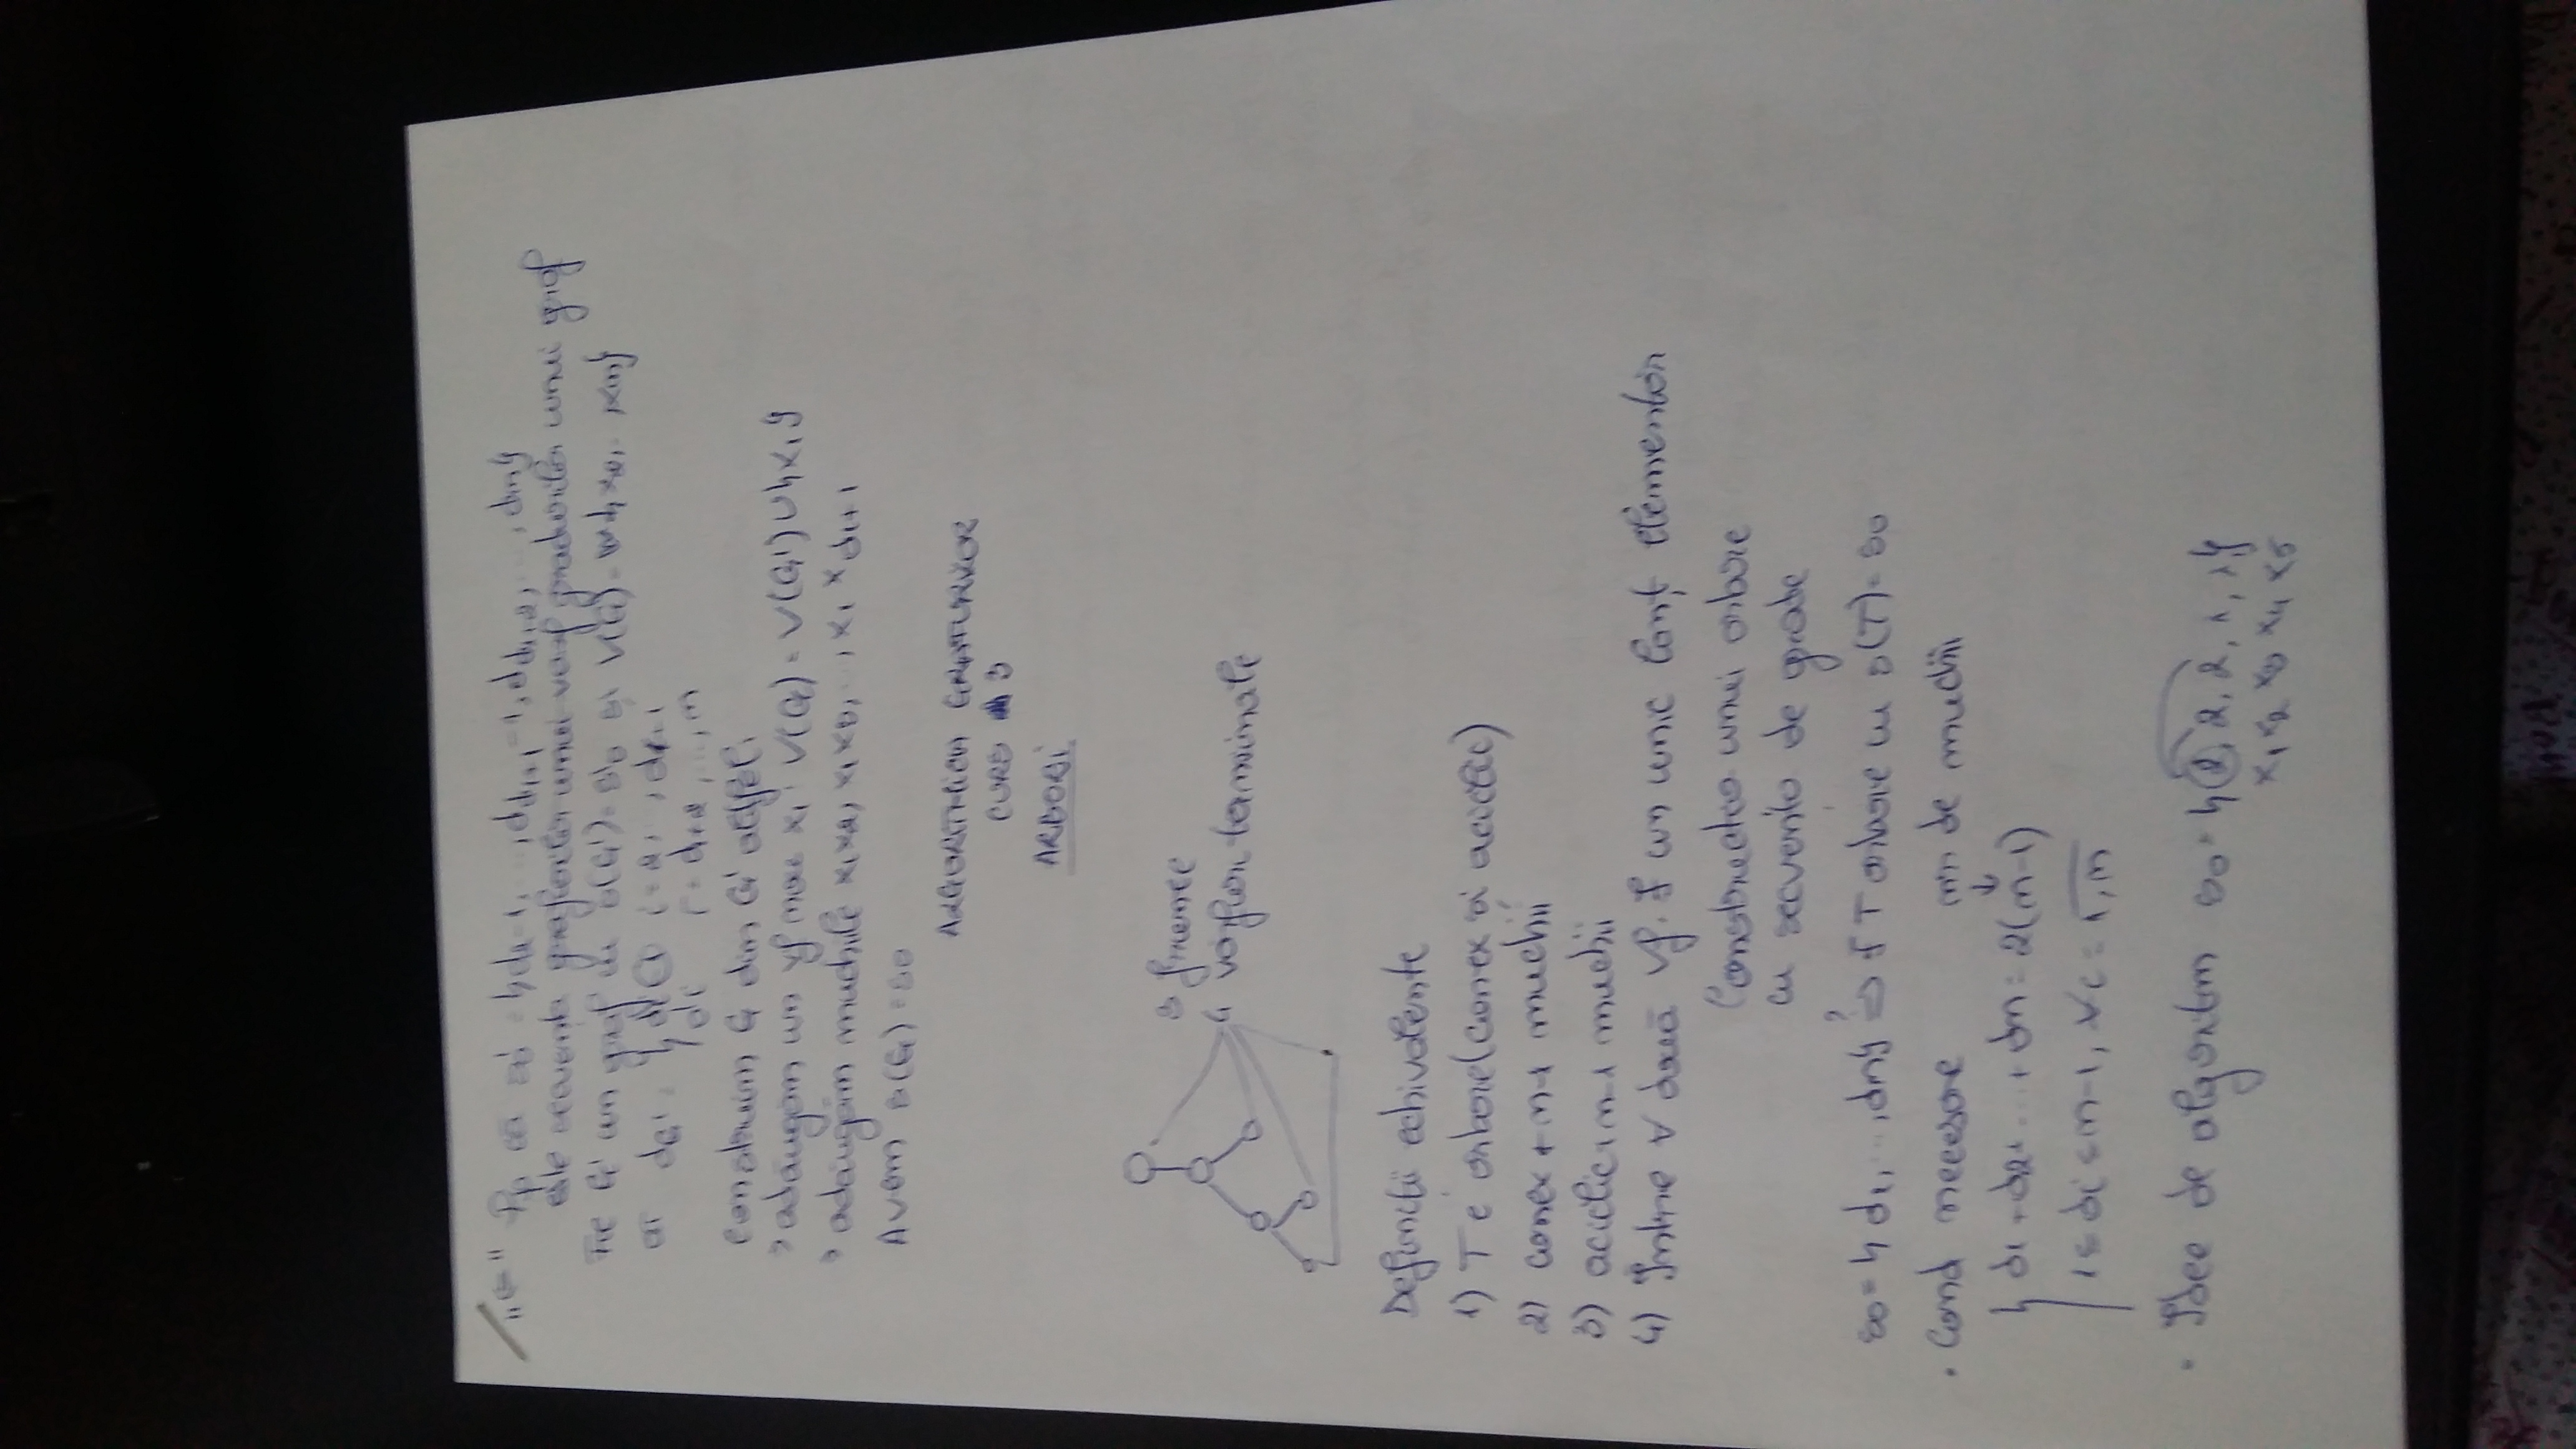 "⇐" Pp că s₀' = {d₂-1, ..., d_{d₁+1}-1, d_{d₁+2}, ..., dn}
este secvența grafurilor unui varf gradurilor unui graf
Fie G' un graf cu s(G') = s'₀ și V(G') = {x₂, ..., xn}
aî dG' = { di-1 i = 2, ..., d₁+1
di i = d₁+2, ..., n
Construim G din G' astfel:
> adăugăm un vf nou x₁: V(G) = V(G') ∪ {x₁}
> adăugăm muchiile x₁x₂, x₁x₃, ..., x₁ x_{d₁+1}
Avem s(G) = s₀
ALGORITMICA GRAFURILOR
CURS 3
ARBORI
frunze
vârfuri terminale
Definiții echivalente
1) T e arbore (conex și aciclic)
2) conex + n-1 muchii
3) aciclic + n-1 muchii
4) Între ∀ două vf. ∃ un unic lanț elementar
Construcția unui arbore
cu secvența de grade
s₀ = {d₁, ..., dn} ?⇒ ∃ T arbore cu s(T) = s₀
. Cond necesare nr de muchii
↓
{ d₁ + d₂ + ... + dn = 2(n-1)
1 ≤ di ≤ n-1, ∀i = 1,n
. Idee de algoritm s₀ = {2, 2, 2, 1, 1}
x₁ x₂ x₃ x₄ x₅